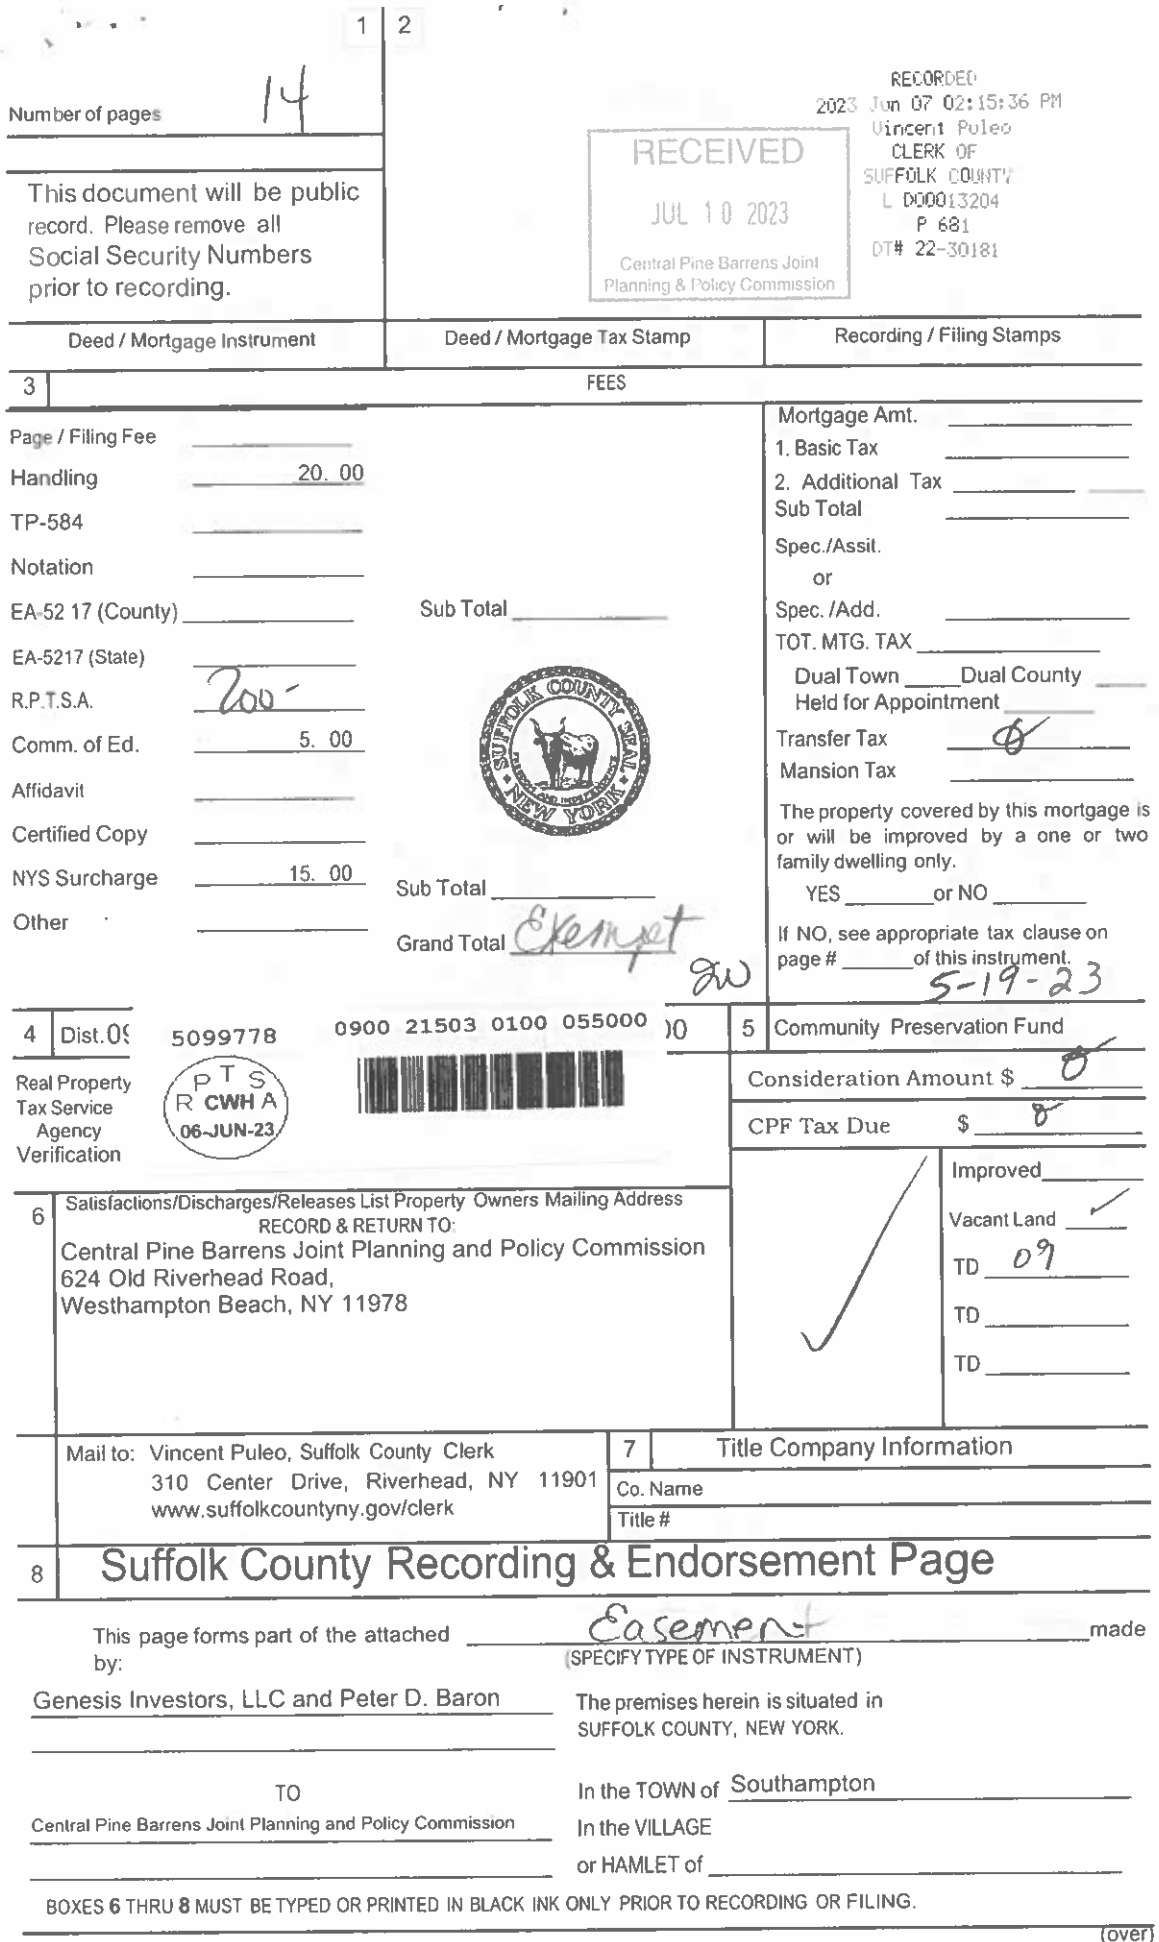 1 2
Number of pages 14
This document will be public
record. Please remove all
Social Security Numbers
prior to recording.
RECEIVED
JUL 10 2023
Central Pine Barrens Joint
Planning & Policy Commission
RECORDED
2023 Jun 07 02:15:36 PM
Vincent Puleo
CLERK OF
SUFFOLK COUNTY
L D00013204
P 681
DT# 22-30181
Deed / Mortgage Instrument
Deed / Mortgage Tax Stamp
Recording / Filing Stamps
3 FEES
Page / Filing Fee
Handling 20. 00
TP-584
Notation
EA-52 17 (County)
EA-5217 (State)
R.P.T.S.A. 200-
Comm. of Ed. 5. 00
Affidavit
Certified Copy
NYS Surcharge 15. 00
Other
Sub Total
SUFFOLK COUNTY SEAL
NEW YORK
Sub Total
Grand Total Exempt
Mortgage Amt.
1. Basic Tax
2. Additional Tax
Sub Total
Spec./Assit.
or
Spec. /Add.
TOT. MTG. TAX
Dual Town Dual County
Held for Appointment
Transfer Tax
Mansion Tax
The property covered by this mortgage is
or will be improved by a one or two
family dwelling only.
YES or NO
If NO, see appropriate tax clause on
page # of this instrument.
5-19-23
4 Dist.09
5099778
0900 21503 0100 055000
00
Real Property
Tax Service
Agency
Verification
P T S
R CWH A
06-JUN-23
5 Community Preservation Fund
Consideration Amount $ 0
CPF Tax Due $ 0
Improved
Vacant Land
TD 09
TD
TD
6 Satisfactions/Discharges/Releases List Property Owners Mailing Address
RECORD & RETURN TO:
Central Pine Barrens Joint Planning and Policy Commission
624 Old Riverhead Road,
Westhampton Beach, NY 11978
Mail to: Vincent Puleo, Suffolk County Clerk
310 Center Drive, Riverhead, NY 11901
www.suffolkcountyny.gov/clerk
7 Title Company Information
Co. Name
Title #
8 Suffolk County Recording & Endorsement Page
This page forms part of the attached Easement made
by:
(SPECIFY TYPE OF INSTRUMENT)
Genesis Investors, LLC and Peter D. Baron
The premises herein is situated in
SUFFOLK COUNTY, NEW YORK.
TO
In the TOWN of Southampton
Central Pine Barrens Joint Planning and Policy Commission
In the VILLAGE
or HAMLET of
BOXES 6 THRU 8 MUST BE TYPED OR PRINTED IN BLACK INK ONLY PRIOR TO RECORDING OR FILING.
(over)